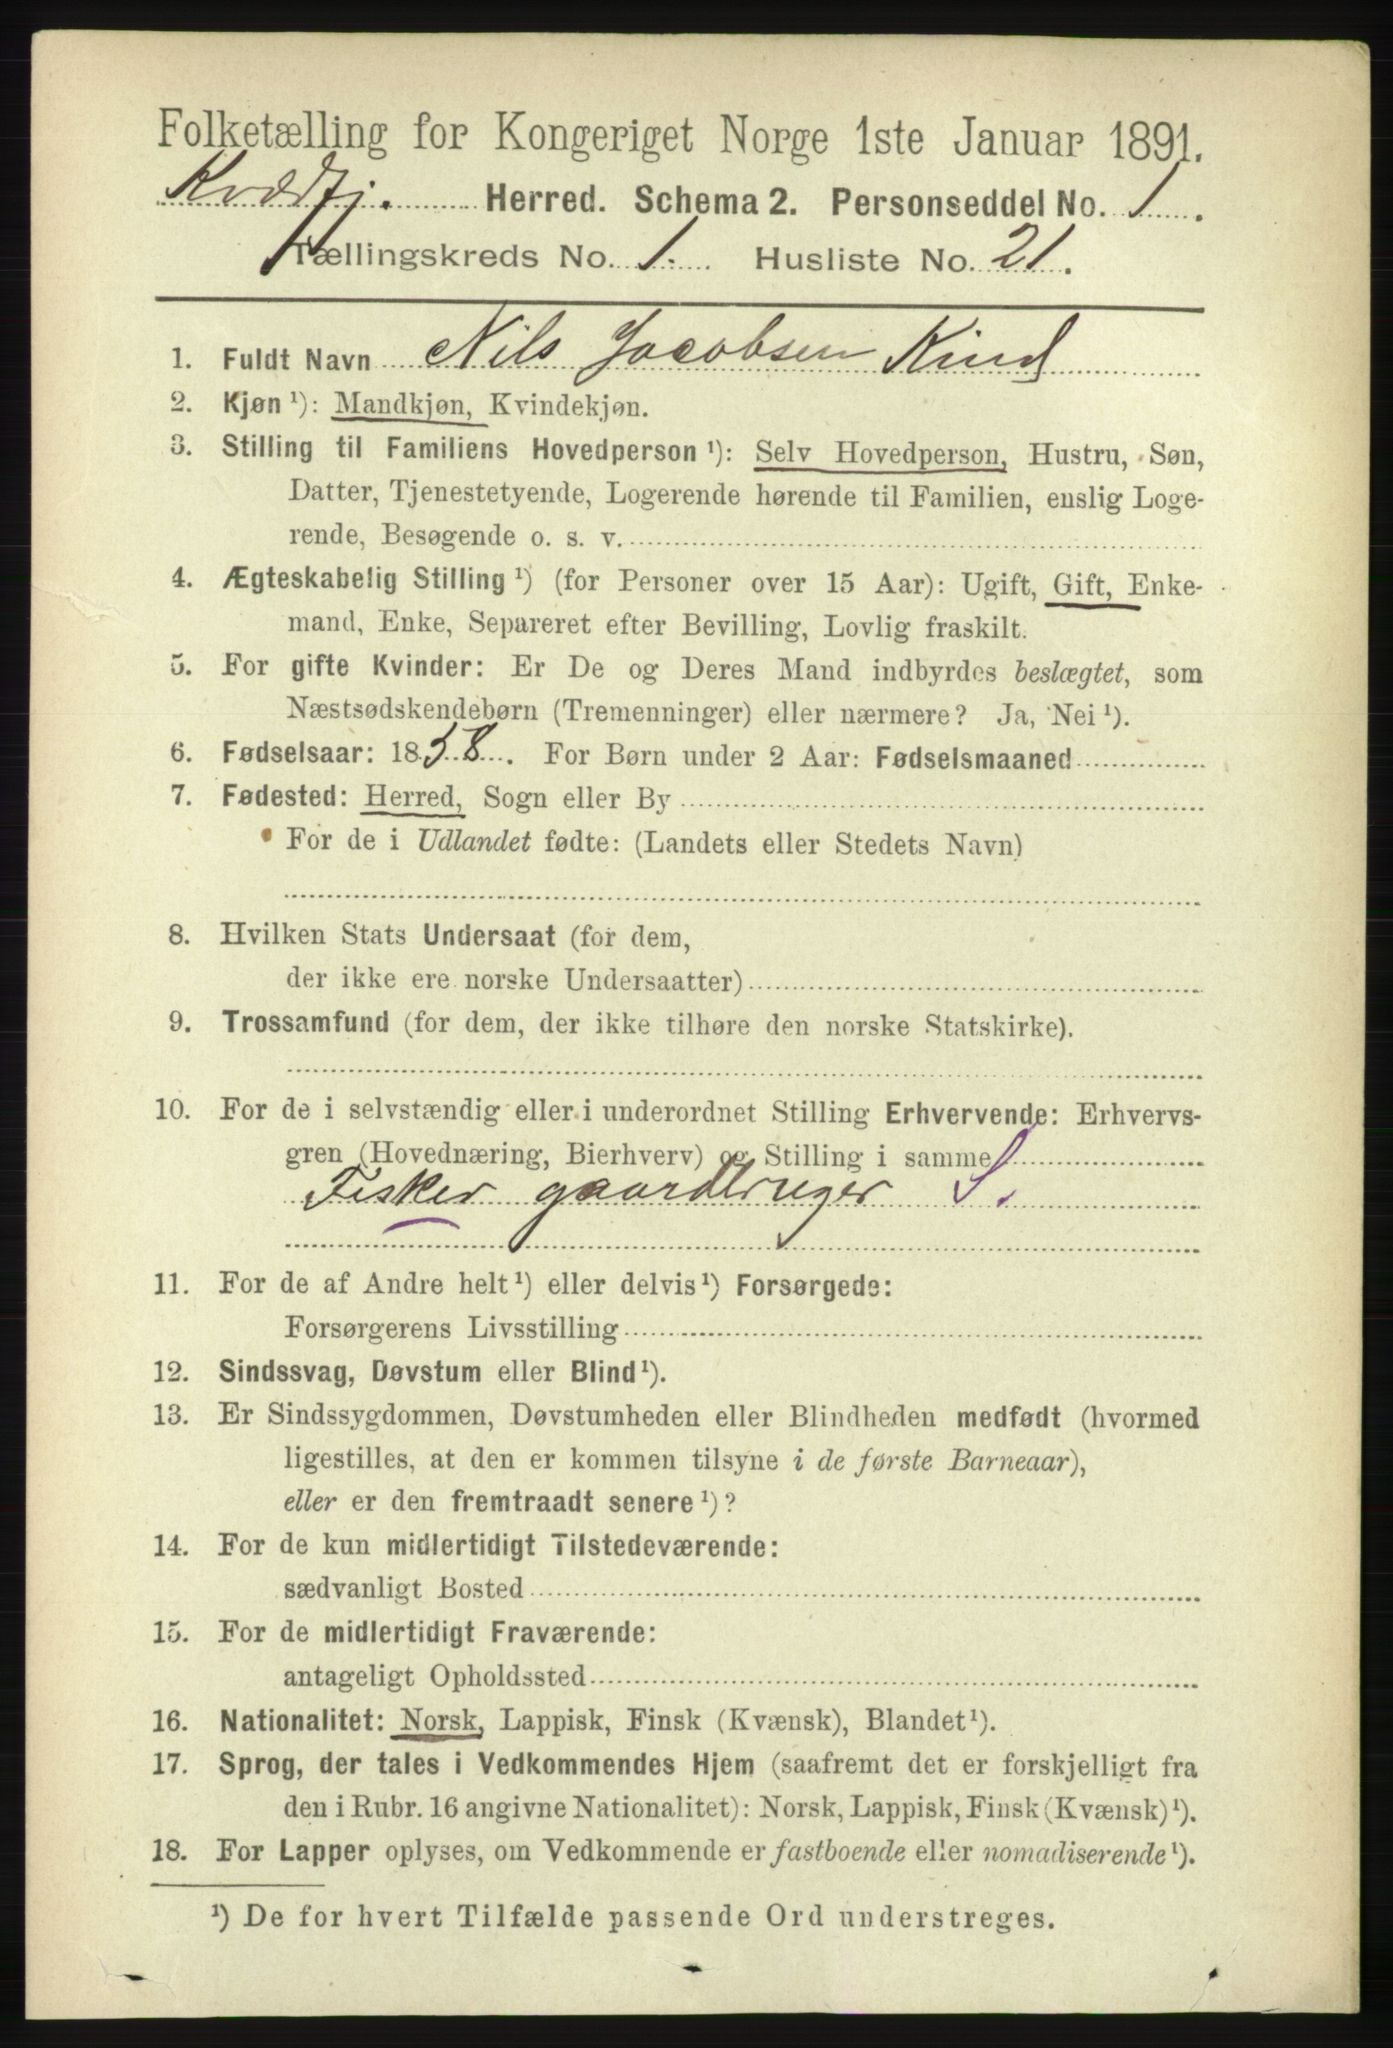 Folketælling for Kongeriget Norge 1ste Januar 1891.
Kvædfj. Herred. Schema 2. Personseddel No. 1.
Tællingskreds No. 1. Husliste No. 21.
1. Fuldt Navn Nils Jacobsen Kind
2. Kjøn ¹): Mandkjøn, Kvindekjøn.
3. Stilling til Familiens Hovedperson ¹): Selv Hovedperson, Hustru, Søn,
Datter, Tjenestetyende, Logerende hørende til Familien, enslig Loge-
rende, Besøgende o. s. v.
4. Ægteskabelig Stilling ¹) (for Personer over 15 Aar): Ugift, Gift, Enke-
mand, Enke, Separeret efter Bevilling, Lovlig fraskilt.
5. For gifte Kvinder: Er De og Deres Mand indbyrdes beslægtet, som
Næstsødskendebørn (Tremenninger) eller nærmere? Ja, Nei ¹).
6. Fødselsaar: 1858. For Børn under 2 Aar: Fødselsmaaned
7. Fødested: Herred, Sogn eller By
For de i Udlandet fødte: (Landets eller Stedets Navn)
8. Hvilken Stats Undersaat (for dem,
der ikke ere norske Undersaatter)
9. Trossamfund (for dem, der ikke tilhøre den norske Statskirke).
10. For de i selvstændig eller i underordnet Stilling Erhvervende: Erhvervs-
gren (Hovednæring, Bierhverv) og Stilling i samme
Fisker gaardbruger S.
11. For de af Andre helt ¹) eller delvis ¹) Forsørgede:
Forsørgerens Livsstilling
12. Sindssvag, Døvstum eller Blind ¹).
13. Er Sindssygdommen, Døvstumheden eller Blindheden medfødt (hvormed
ligestilles, at den er kommen tilsyne i de første Barneaar),
eller er den fremtraadt senere ¹)?
14. For de kun midlertidigt Tilstedeværende:
sædvanligt Bosted
15. For de midlertidigt Fraværende:
antageligt Opholdssted
16. Nationalitet: Norsk, Lappisk, Finsk (Kvænsk), Blandet ¹).
17. Sprog, der tales i Vedkommendes Hjem (saafremt det er forskjelligt fra
den i Rubr. 16 angivne Nationalitet): Norsk, Lappisk, Finsk (Kvænsk) ¹).
18. For Lapper oplyses, om Vedkommende er fastboende eller nomadiserende ¹).
¹) De for hvert Tilfælde passende Ord understreges.